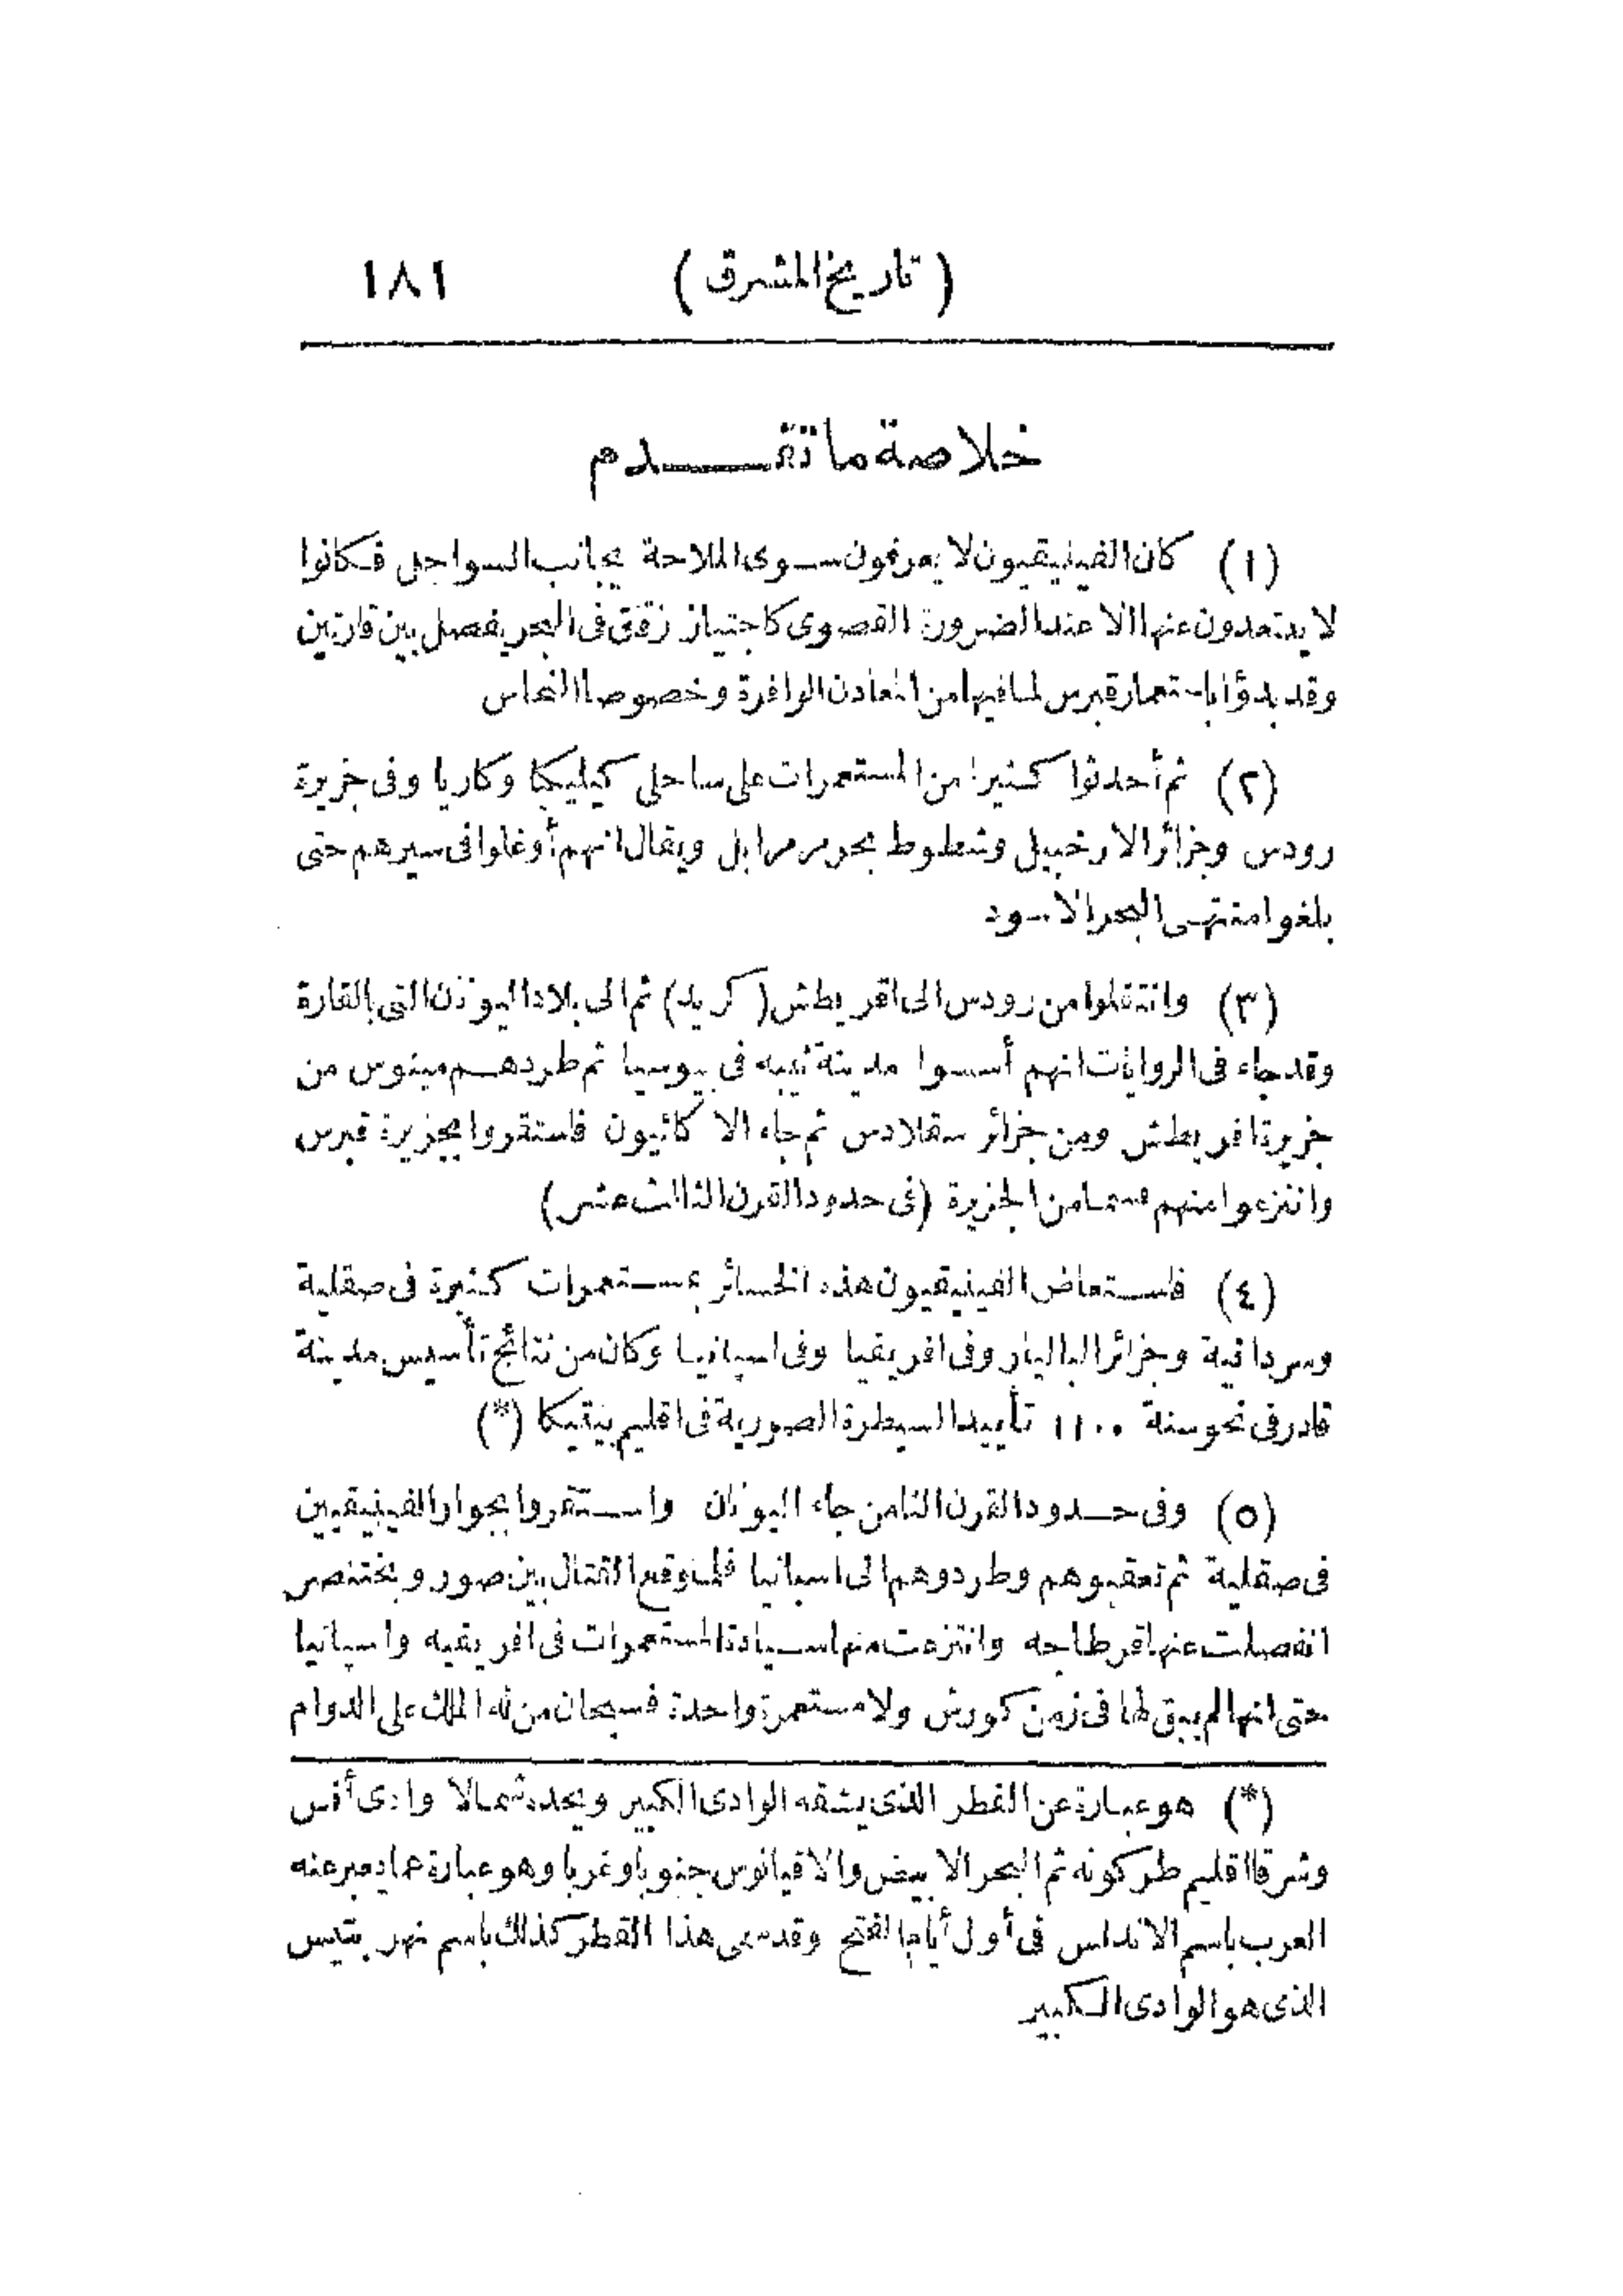 (تاريخ المشرق) ١٨١
خلاصة ما تقدم
(١) كان الفينيقيون لا يعرفون سوى الملاحة بجانب السواحل فكانوا
لا يبتعدون عنها الا عند الضرورة القصوى كاجتياز زقق في البحر يفصل بين قارتين
وقد بدؤا باستعمار قبرس لما فيها من المعادن الوافرة وخصوصا النحاس
(٢) ثم أحدثوا كثيرا من المستعمرات على ساحلى كيليكيا وكاريا وفى جزيرة
رودس وجزائر الارخبيل وشطوط بحر مرمرا بل ويقال انهم أوغلوا فى سيرهم حتى
بلغوا منتهى البحر الاسود
(٣) وانتقلوا من رودس الى اقريطش (كريد) ثم الى بلاد اليونان التى بالقارة
وقد جاء فى الروايات انهم أسسوا مدينة ثيبه فى بيوسيا ثم طردهم مينوس من
جزيرة اقريطش ومن جزائر سقلادس ثم جاء الا كائيون فاستقروا بجزيرة قبرس
وانتزعوا منهم قسما من الجزيرة (فى حدود القرن الثالث عشر)
(٤) فاستعاض الفينيقيون هذه الخسائر بمستعمرات كثيرة فى صقلية
وسردانية وجزائر الباليار وفى افريقيا وفى اسپانيا وكان من نتائج تأسيس مدينة
قادر فى نحو سنة ١١٠٠ تأييد السيطرة الصورية فى اقليم بيتيكا (*)
(٥) وفى حدود القرن الثامن جاء اليونان واستقروا بجوار الفينيقيين
فى صقلية ثم تعقبوهم وطردوهم الى اسبانيا فلما وقع القتال بين صور و بختنصر
انفصلت عنها قرطاجه وانتزعت منها سيادة المستعمرات فى افريقيه واسپانيا
حتى انها لم يبق لها فى زمن كورش ولا مستعمرة واحدة فسبحان من له الملك على الدوام
(*) هو عبارة عن القطر الذى يشقه الوادى الكبير ويحده شمالا وادى أنس
وشرقا اقليم طركونه ثم البحر الابيض والاقيانوس جنوبا وغربا وهو عبارة عما يعبر عنه
العرب باسم الاندلس فى أول أيام الفتح وقد سمى هذا القطر كذلك باسم نهر بتيس
الذى هو الوادى الكبير